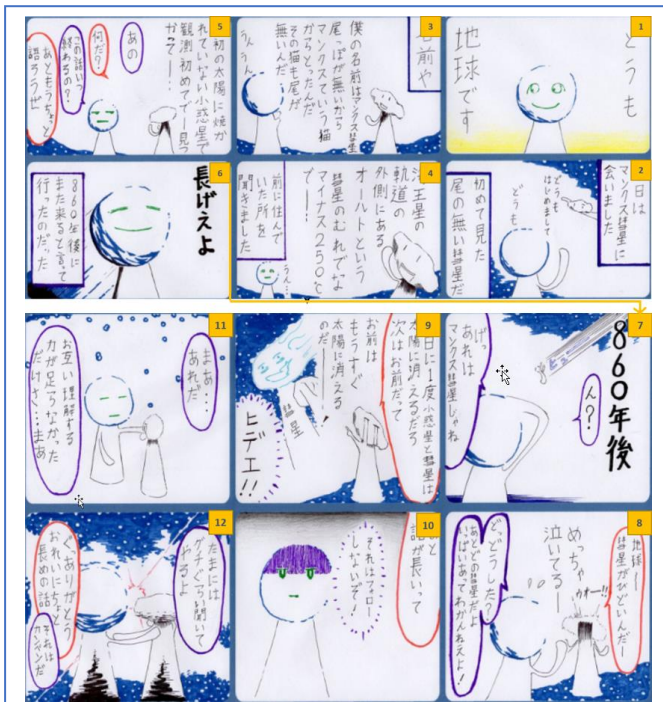 1
どうも
地球です
2
日は
マンクス彗星に
会いました
どうも
はじめまして
どうも
初めて見た
尾の無い彗星だ
3
名前や
僕の名前はマンクス彗星
尾っぽが無いから
マンクスていう猫
からとったんだ
その猫も尾が
無いんだ
うんうん
4
王星の
軌道の
外側にある
オールトという
彗星のむれでな
マイナス250℃
で!
前に住んで
いた所を
聞きました
うん…
5
初の太陽に焼か
れていない小惑星で
観測初めてでー見つ
かって
あの
何だ?
この話いつ
終わるの?
あともうちょっと
語ろうぜ
6
長げえよ
860年後に
また来ると言って
行ったのだった
7
860年後
ん?
げっ
あれは
マンクス彗星じゃね
8
地球ー
彗星がひどいんだー
ウォー!!
めっちゃ
泣いてるー
ど、どうした?
あとどの彗星だよ
いっぱいあてわかんねえよ!
9
日に1度小惑星と彗星は
太陽に消えるだろ
次はお前だって
お前は
もうすぐ
太陽に消える
のだ
彗星
ヒデエ!!
10
話が長いって
それはフォロー
しないぞ!
11
まあ…
あれだ
お互い理解する
力が足らなかった
だけさ…まあ
12
たまには
グチぐらい聞いて
やるよ
ぐっありがとう
おれいにちょっと
長めの話
それは
カンベンだ